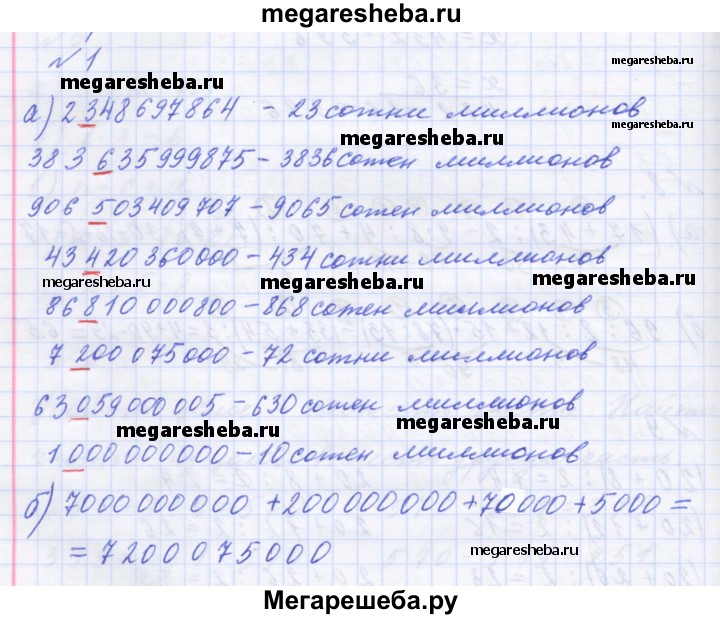 megaresheba.ru
№ 1
megaresheba.ru
megaresheba.ru
а) 2348697864 - 23 сотни миллионов
megaresheba.ru
383 635999875 - 3836 сотен миллионов
906 503409707 - 9065 сотен миллионов
43 420 360000 - 434 сотни миллионов
megaresheba.ru
megaresheba.ru
megaresheba.ru
86 810 000800 - 868 сотен миллионов
7 200 075000 - 72 сотни миллионов
63 059 000 005 - 630 сотен миллионов
megaresheba.ru
megaresheba.ru
1 000 000000 - 10 сотен миллионов
б) 7000 000000 + 200 000000 + 70 000 + 5000 =
= 7200075000
Мегарешеба.ру